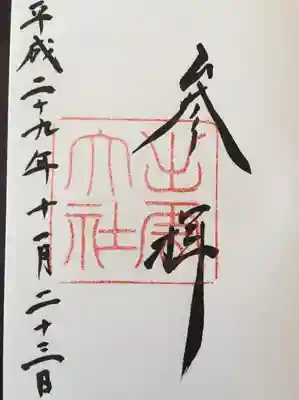 参拝
平成二十九年十一月二十三日
出雲大社